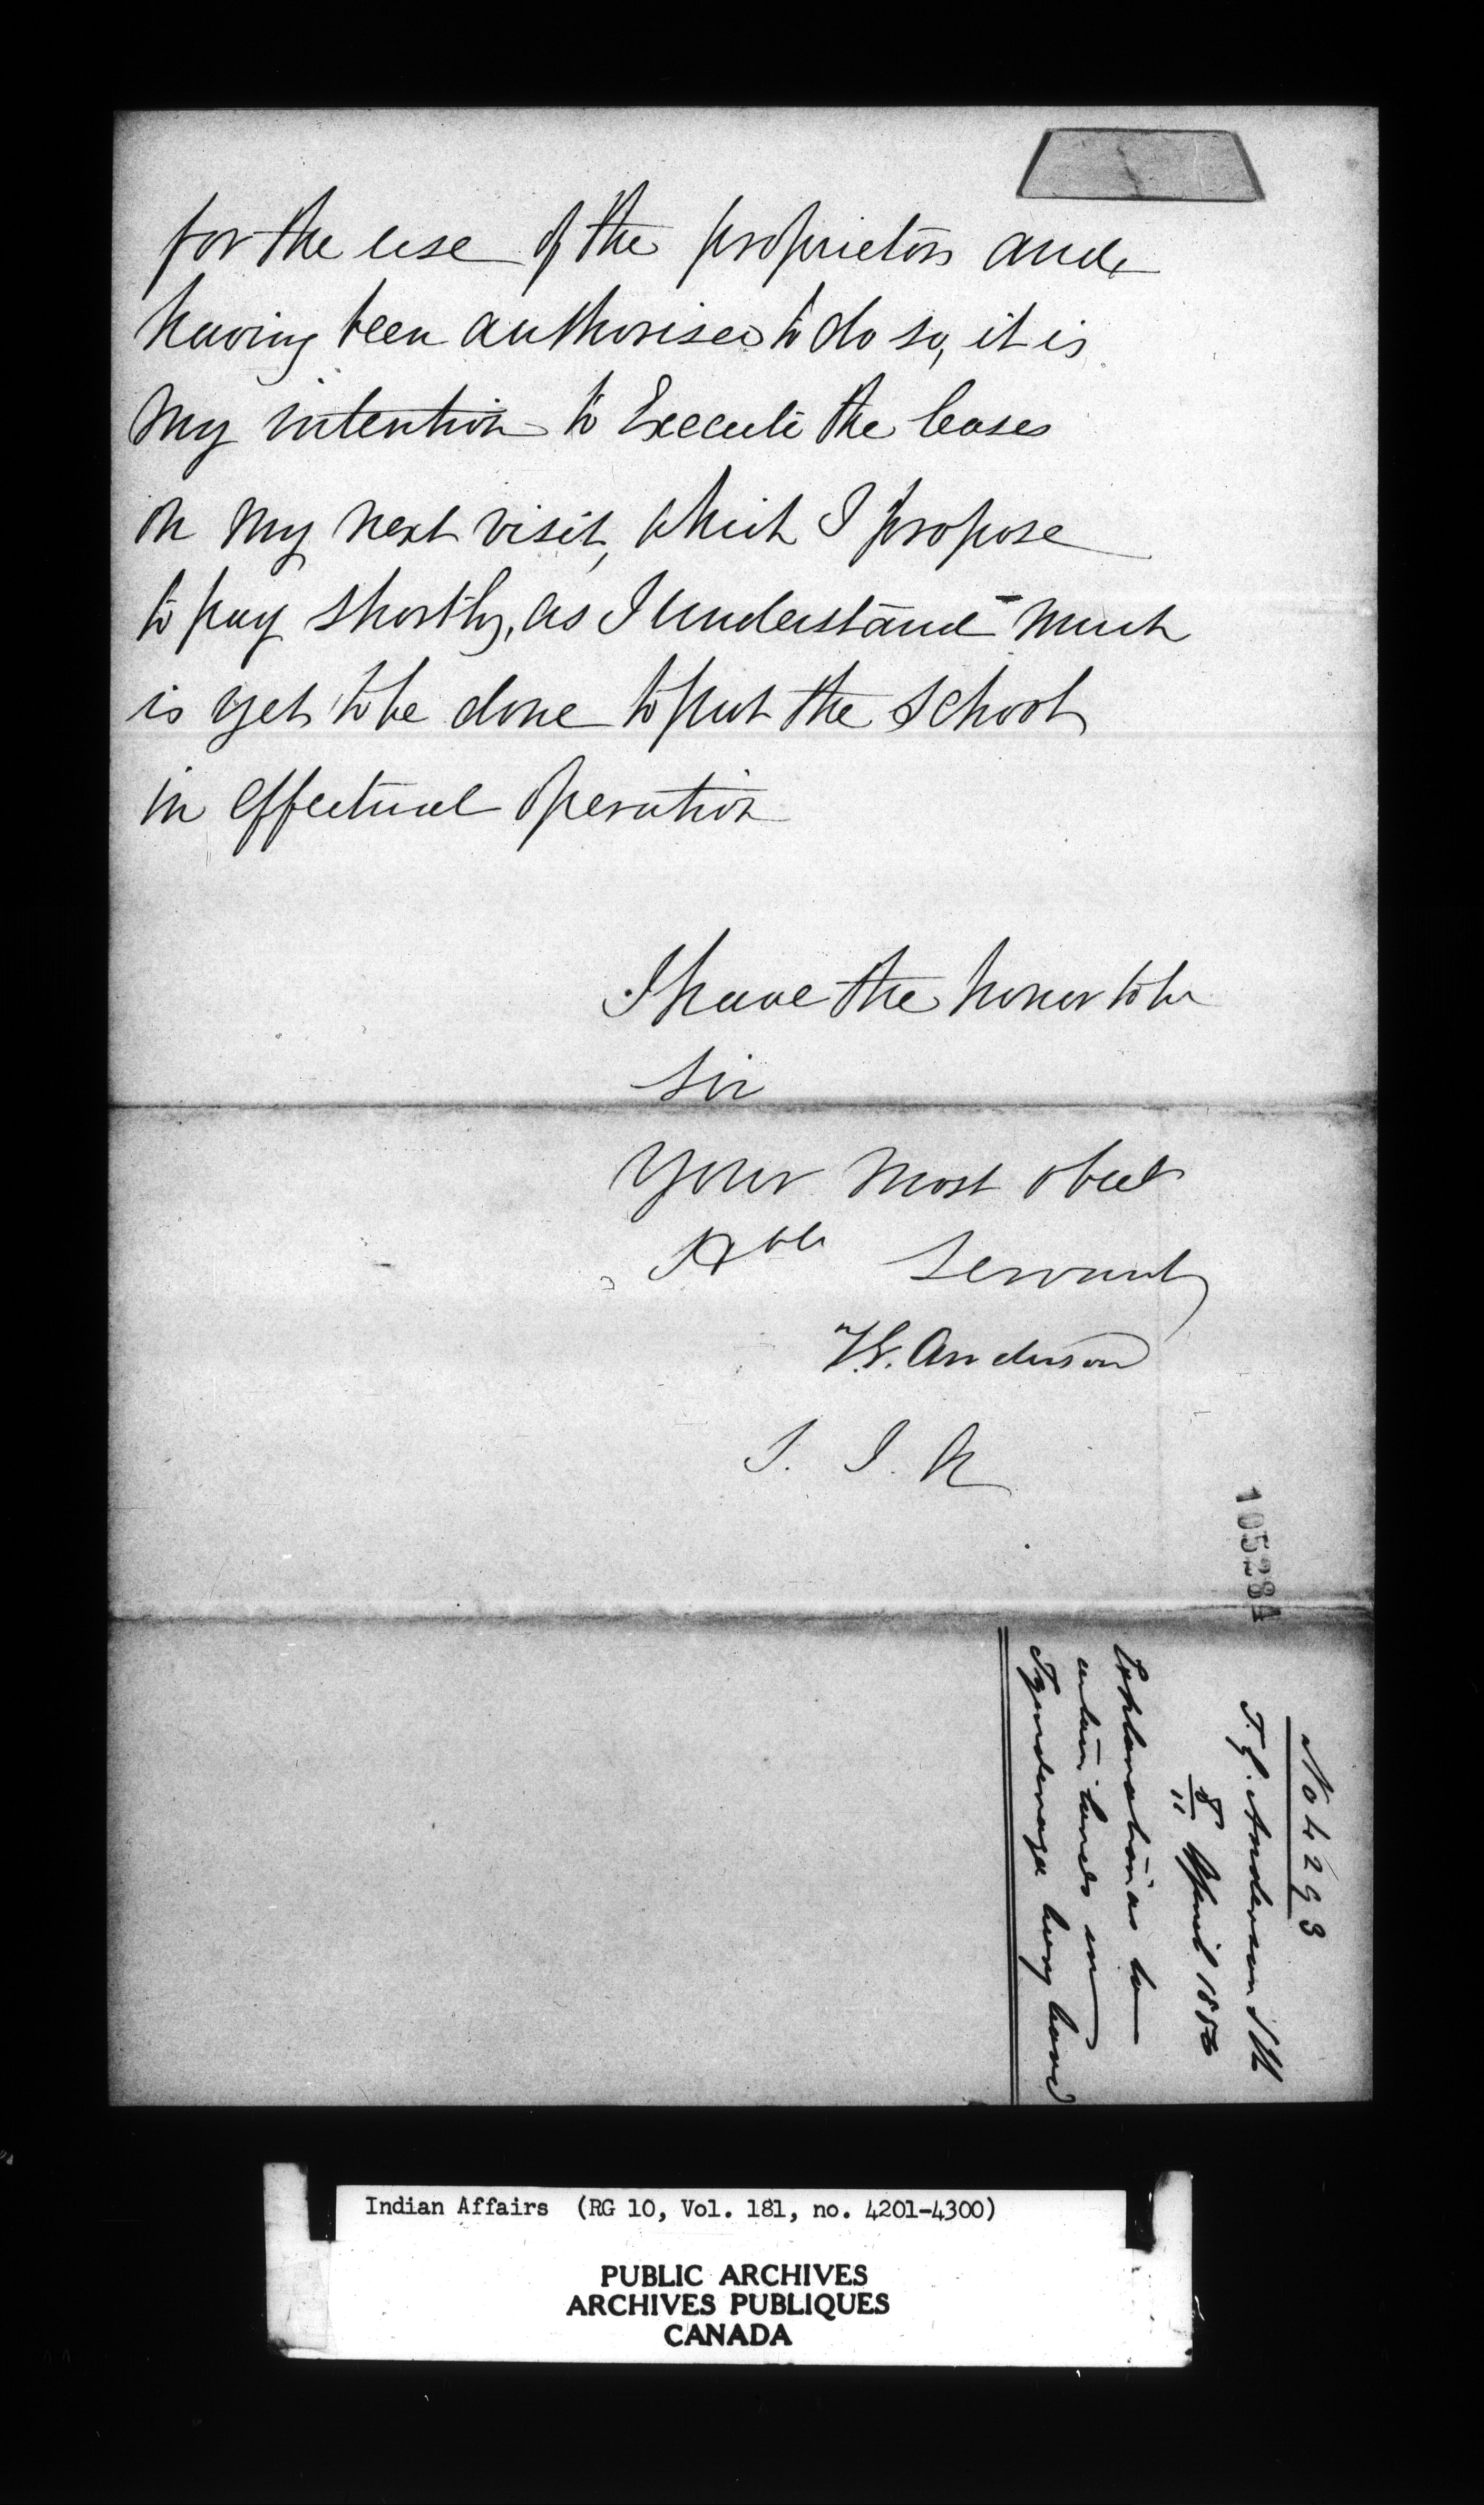 for the use of the proprietors and
having been authorised to do so, it is
my intention to Execute the leases
on my next visit, which I propose
to pay shortly, as I understand much
is yet to be done to put the School
in effectual operation
I have the honor to be
Sir
Your most obed
Hble Servant
T.G. Anderson
S. I. A
105284
No 4293
T. G. Anderson
8/11 April 1850
Explanation as to
certain lands in
Tyendenaga being leased
Indian Affairs (RG 10, Vol. 181, no. 4201-4300)
PUBLIC ARCHIVES
ARCHIVES PUBLIQUES
CANADA